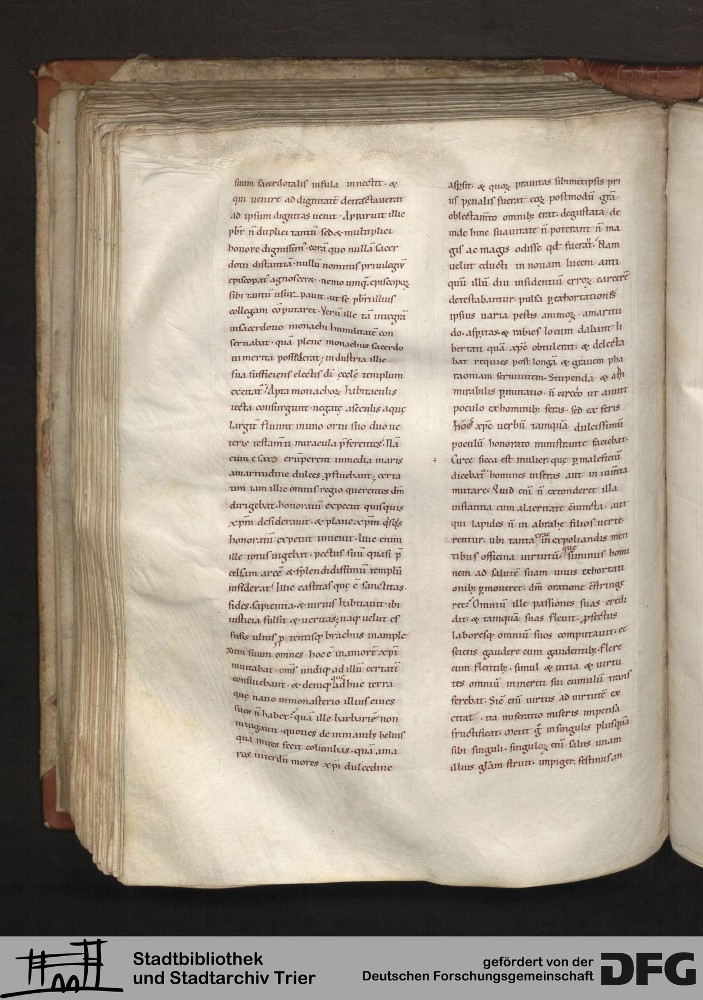 suum sacerdotalis infula innectit · &
qui venire ad dignitatē detractaverat
ad ipsum dignitas venit · Apparuit illic
pbr̄ n̄ duplici tantū sed & multiplici
honore dignissim' · corā quo nullā sacer
dotii distantiā · nullū nominis privilegiū
episcopat' agnosceret · nemo umq̄ episcopoꝝ
sibi tantū usur pavit · ut se pbr̄i illius
collegam cōputaret · Verū ille tā integrā
in sacerdotio monachi humilitatē con
servabat · quā plene monachus sacerdo
tii merita possederat · industria illic
sua sufficiens electis dī ęcclę templum
excitat' · Apta monachoꝝ habitaculis
tecta consurgunt · negatę a seculis aquę
largit' fluunt
teris testam̄ti miracula p̄ferentes · Nā
cum e saxo erūperent in media maris
amaritudine dulces p̄fluebant ·
tim iam illic omnis regio querentes dm̄
dirigebat · honoratū expetit quisquis
xp̄m desideravit · & plane xp̄m
honoratū expetiit invenit · huc enim
ille totus vigebat · pectus suū quasi p̄
celsam arcē & splendidissimū templū
insiderat · huic castitas quę ē sanctitas ·
fides sapientia · & virtus habitavit · ibi
iusticia fulsit & veritas · itaq; velut ef
fusis ulnis p̄tentisq; brachiis in ample
xum suum omnes hoc ē in amorē xp̄i
invitabat · om̄s undiq; ad illū certatī
confluebant · & deniq; quę adhuc terra
quę natio in monasterio illius cives
suos n̄ habet · quā ille barbariē non
mitigavit · quoties de immanib; beluis
quasi mites fecit columbas · quā ama
ros interdū mores xp̄i dulcedine
aspsit · & quoꝝ pravitas sibimetipsis pri
us penalis fuerat · eoꝝ postmodū grā
oblectam̄to omnib; erat · degustata · de
inde huic suavitate n̄ poterant n̄ ma
gis ac magis odisse qd̄ fuerat · Nam
velut educti in novam lucem anti
quū illū diu insidentiū erroꝝ carcerē
detestabantur · pulsa p̄ exhortationēs
ipsius varia pestis animoꝝ · amaritu
do · asp̄itas & rabies locum dabant li
bertati quā xp̄c obtulerat · & delecta
bat requies post longā & gravem pha
raoniam servitutem · Stupenda & am
mirabilis p̄mutatio · n̄ circeo ut aiunt
poculo ex hominib; feras · sed ex feris
hōēs xp̄c verbū tamquā dulcissimū
poculū honorato ministrante faciebat ·
Circe ficta est mulier · quę p̄ maleficiū
dicebat' homines in feras aut in iumta
mutare · Quid eni n̄ extonderet illa
instantia cum alacritate · aut
qui lapides n̄ in abrahę filios verte
rentur · ubi tanta erat in expoliandis men
tibus officina virtutū · quę summus homi
nem ad salutē suam vivis exhortati
onib; p̄moveret · dm̄ oratione cōstringe
ret · Omniū ille passiones suas credi
dit · & tamquā suas flevit · p̄fectus
laboresq; omniū suos computavit · et
sciens gaudere cum gaudentib; · flere
cum flentib; · simul & vitia & virtu
tes omniū in meriti sui cumulū trans
ferebat · Sic eni virtus ad virtutē ex
citat · ita miseratio miseris impensa
fructificat · metit g° in singulis plusquā
sibi singuli · singuloꝝ eni salus unam
illius glam struit · impiger · festinus · in
Stadtbibliothek
und Stadtarchiv Trier
gefördert von der
Deutschen Forschungsgemeinschaft
DFG